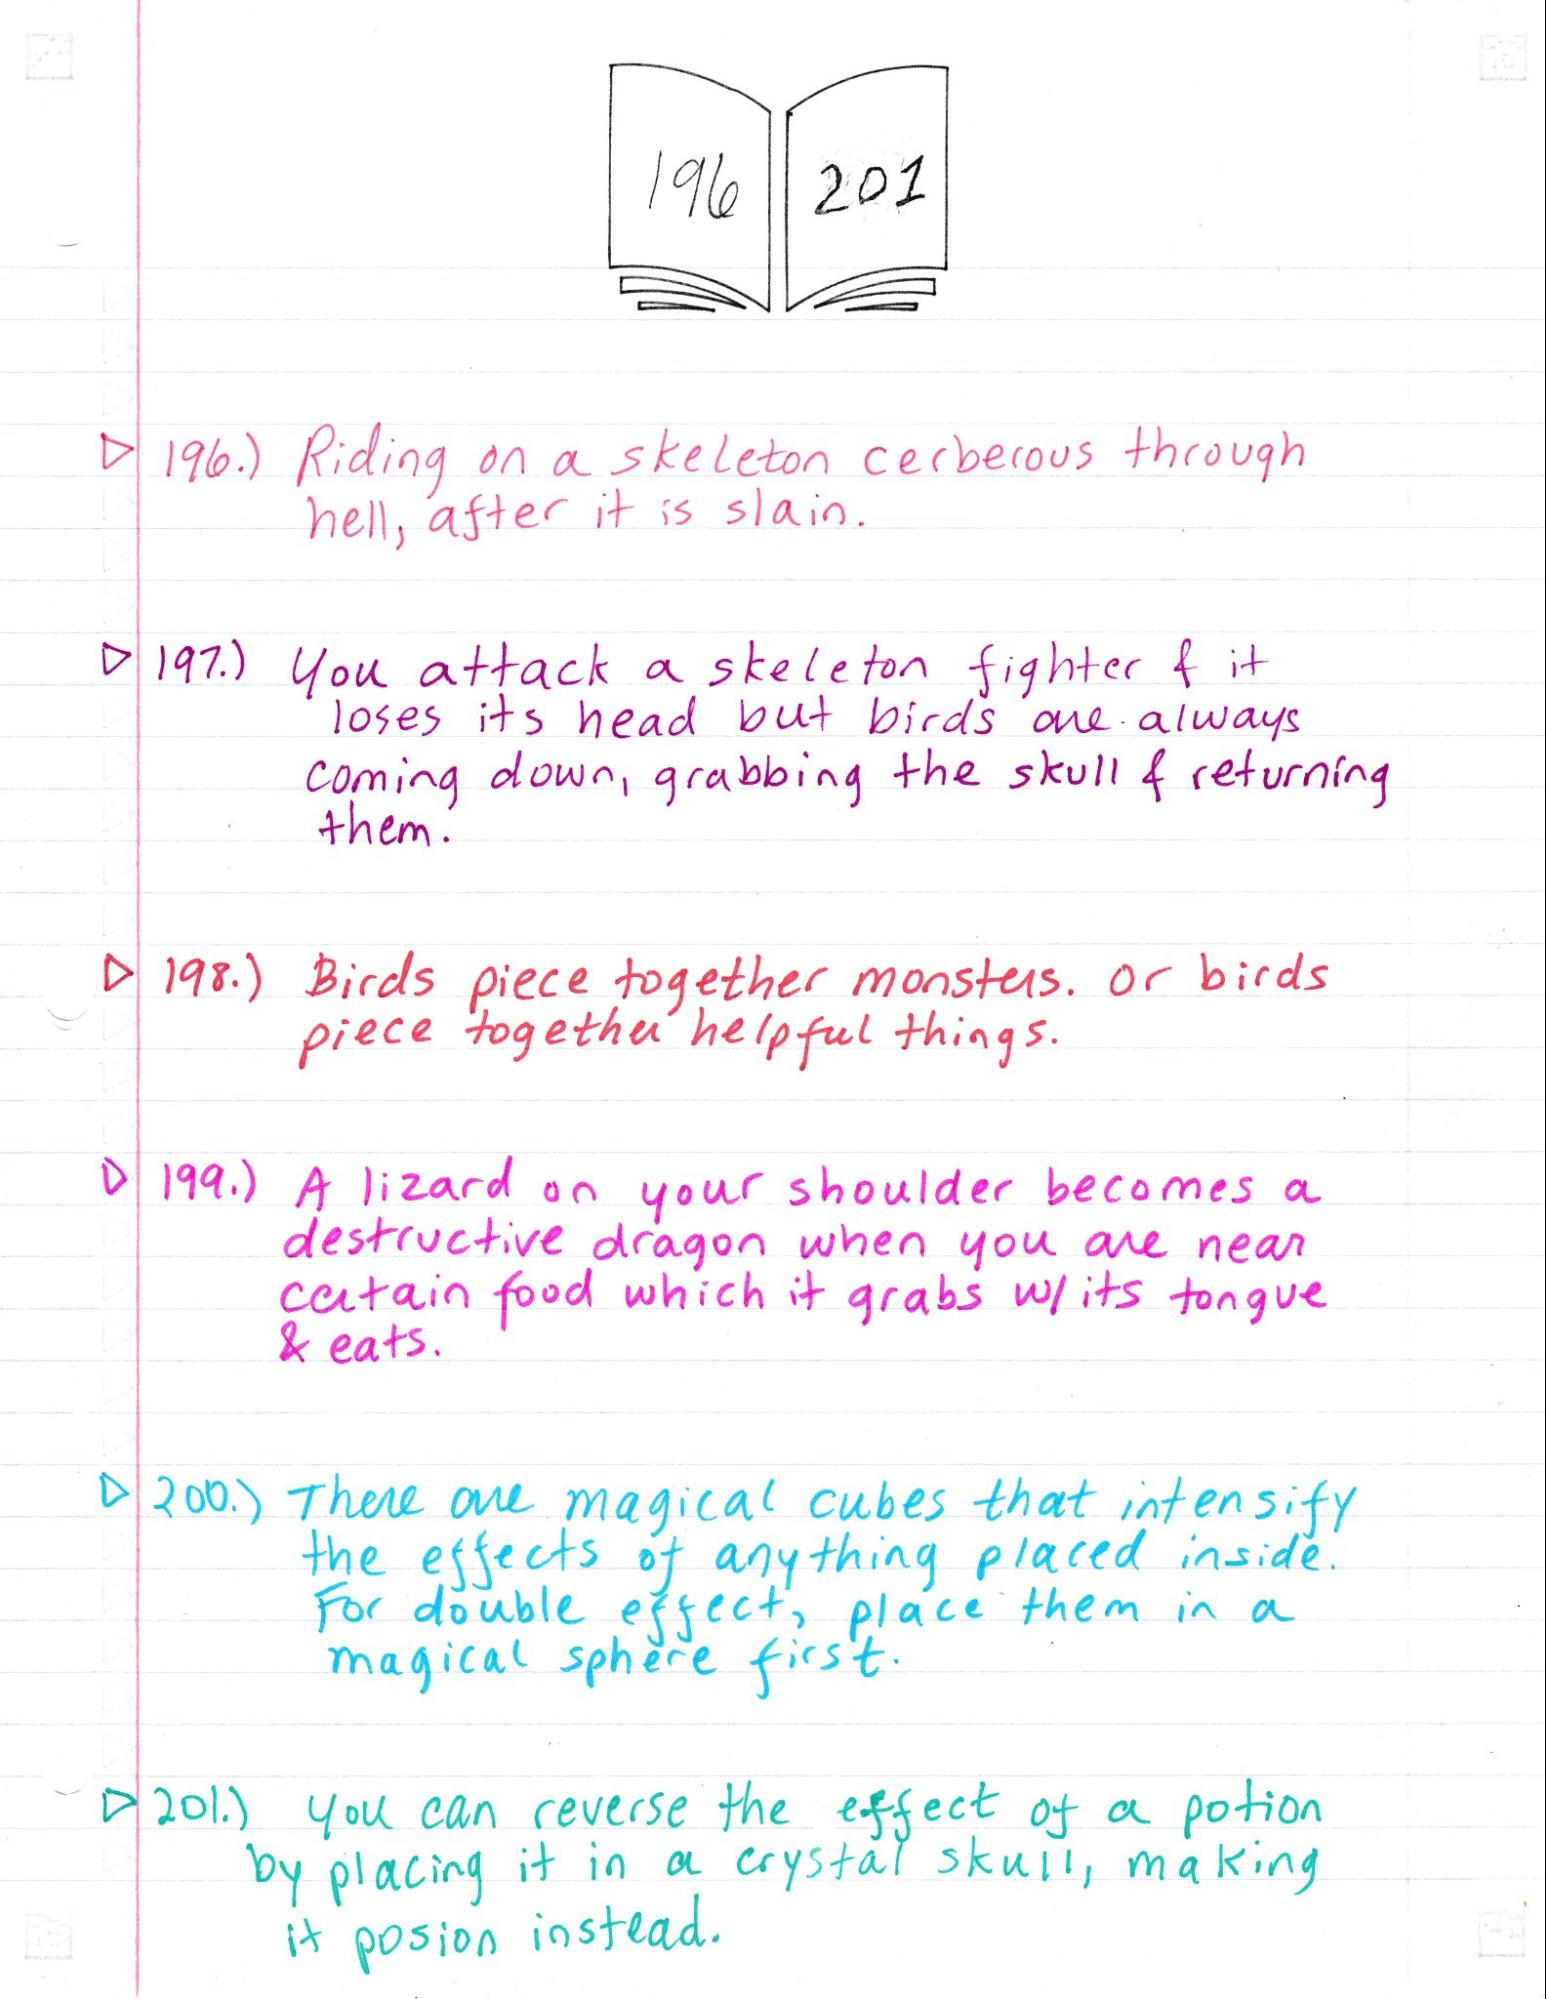 196 201
196.) Riding on a skeleton cerberous through
hell, after it is slain.
197.) You attack a skeleton fighter & it
loses its head but birds are always
coming down, grabbing the skull & returning
them.
198.) Birds piece together monsters. or birds
piece together helpful things.
199.) A lizard on your shoulder becomes a
destructive dragon when you are near
certain food which it grabs w/ its tongue
& eats.
200.) There are magical cubes that intensify
the effects of anything placed inside.
For double effect, place them in a
magical sphere first.
201.) You can reverse the effect of a potion
by placing it in a crystal skull, making
it posion instead.